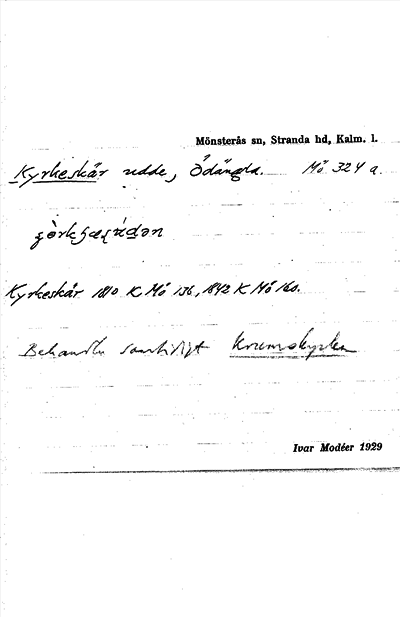 Mönsterås sn, Stranda hd, Kalm. l.
Kyrkeskär udde, Ödängla. Mö 324 a.
Kyrkeskär 1810 K Mö 136, 1842 K Mö 160.
Behandla samtidigt Krumskyrkan
Ivar Modéer 1929